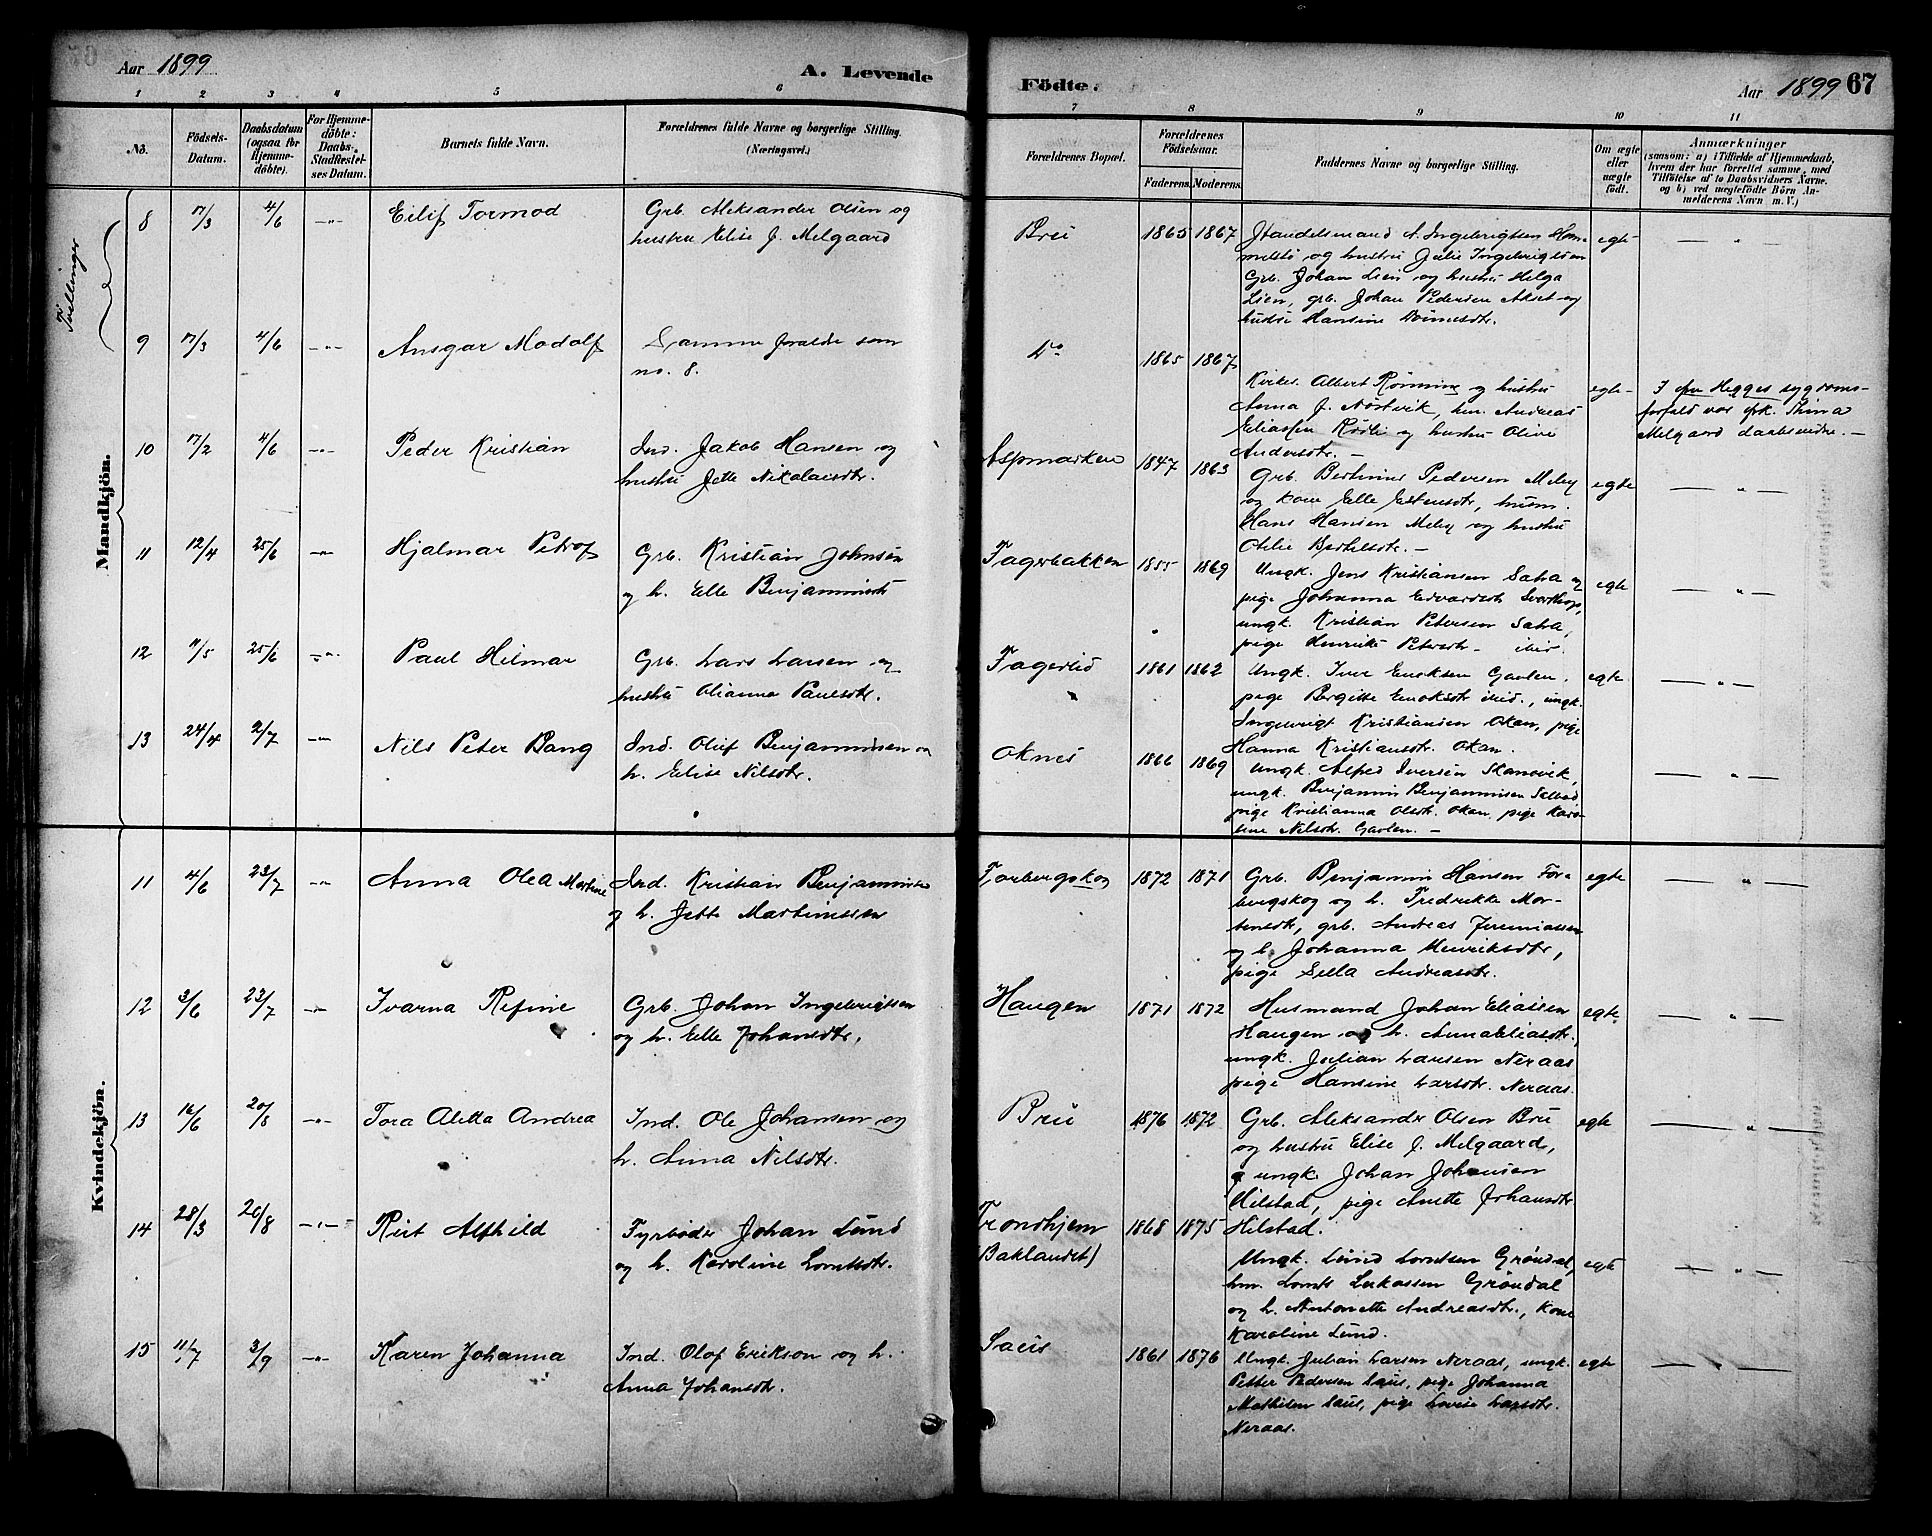 Aar 1899
A. Levende
Födte.
Aar 1899 67
1 2 3 4 5 6 7 8 9 10 11
No.
Födsels-
Datum.
Daabsdatum
(ogsaa for
Hjemme-
döbte).
For Hjemme-
döbte:
Daabs-
Stadfæstel-
ses Datum.
Barnets fulde Navn.
Forældrenes fulde Navne og borgerlige Stilling.
(Næringsvei.)
Forældrenes Bopæl.
Forældrenes
Födselsaar.
Faderens Moderens
Faddernes Navne og borgerlige Stilling.
Om ægte
eller
uægte
födt.
Anmærkninger
(saasom: a) i Tilfælde af Hjemmedaab,
hvem der har forrettet samme, med
Tilföielse af to Daabsvidners Navne,
og b) ved uægtefödte Börn An-
melderens Navn m. V.)
Tvillinger
Mandkjön.
8 17/3 4/6 —"— Eilif Tormod
Grb. Aleksander Olsen og
hustru Elise J. Melgaard
Brei 1865 1867
Handelsmand A. Ingebrigtsen
og hustru Julie Ingebrigtsen
Grb. Johan Lien og hustru Helga
Lien, grb. Johan Pedersen Akset og
Hansine
egte — " —
9 17/3 4/6 —"— Ansgar Modolf
Samme foreldre som
no. 8.
Do 1865 1867
Kirkes. Albert Rönning og hustru
Anna J. Nöstvik, hm. Andreas
Eliassen og hustru Olive
Andersdtr. —
egte—
I Hegges sygdoms-
forfald var frk. Thina
Melgaard daabsvidne. —
10 17/2 4/6 —"— Peder Kristian
Ind. Jakob Hansen og
hustru Jette Nikolaisdtr.
Aspmarken 1847 1863
Grb. Berthinus Pedersen Meley
og kone Elle Estensdtr, husm.
Hans Hansen Meley og hustru
Otelie Berthelsdtr. —
egte — " —
11 12/4 25/6 —"— Hjalmar Petrof
Grb. Kristian Johnsen
og h. Elle Benjaminsdt
Fagerbakken 1855 1869
Ungk. Jens Kristiansen Satra og
pige Johanna Edvardsdt
ungk. Kristian Petersen Satra,
pige Henrikke Petersdt— ibid.
egte — " —
12 11/5 25/6 —"— Paul Hilmar
Grb. Lars Larsen og
hustru Olianna Paulsdtr.
Fagerlid 1861 1862
Ungk. Iver Enoksen Gavlen,
pige Bergitte Enoksdt ibid., ungk.
Ingebrigt Kristiansen Okan, pige
Hanna Kristiansdtr. Okan.
egte — " —
13 24/4 2/7 —"— Nils Peter Bang
Ind. Oluf Benjaminsen og
h. Elise Nilsdtr.
Oknes 1866 1869
Ungk. Alfred Iversen Skansvik,
ungk. Benjamin Benjaminsen
pige Kristianna Olsdt. Okan, pige Karo-
line Nilsdtr. Gavlen. —
— " —
Kvindekjön.
11 4/6 23/7 —"— Anna Olea Martine
Ind. Kristian Benjaminsen
og h. Jette Martinussen
Forbergskog 1872 1871
Grb. Benjamin Hansen For-
bergskog og h. Fredrikke Mor-
tensdt, grb. Andreas Jeremiassen
og h. Johanna Henriksdtr,
pige Sella Andreasdtr.
egte — " —
12 3/6 23/7 —"— Ivarna Refine
Grb. Johan Ingebrigtsen
og h. Elle Johansdtr.
Haugen 1871 1872
Husmand Johan Eliassen
Haugen og h. Anna Eliasdtr.,
ungk. Julian Larsen Neraas
pige Hansine Larsdtr. Neraas.
egte. — " —
13 16/6 20/8 —"— Tora Aletta Andrea
Ind. Ole Johansen og
h. Anna Nilsdtr.
Brei 1876 1872
Grb. Aleksander Olsen Brei
og hustru Elise J. Melgaard,
ungk. Johan Johansen
Hilstad, pige Anette Johansdtr
Hilstad.
egte — " —
14 28/3 20/8 —"— Rut Alfhild
Fyrböder Johan Lund
og h. Karoline Lorntsdtr.
Trondhjem
(Baklandet) 1868 1875
Ungk. Lund Lorntsen Gröndal,
hm. Lornts Lukassen Gröndal
og h. Antonette Andreasdtr., kone
Karoline Lund.
egte — " —
15 11/7 3/9 —"— Karen Johanna
Ind. Olof Erikson og h.
Anna Johansdtr.
Saus 1861 1876
Ungk. Julian Larsen Neraas, ungk.
Petter Pedersen Saus, pige Johanna
Mathisen Saus, pige Lovise Larsdtr.
Neraas.
egte — " —